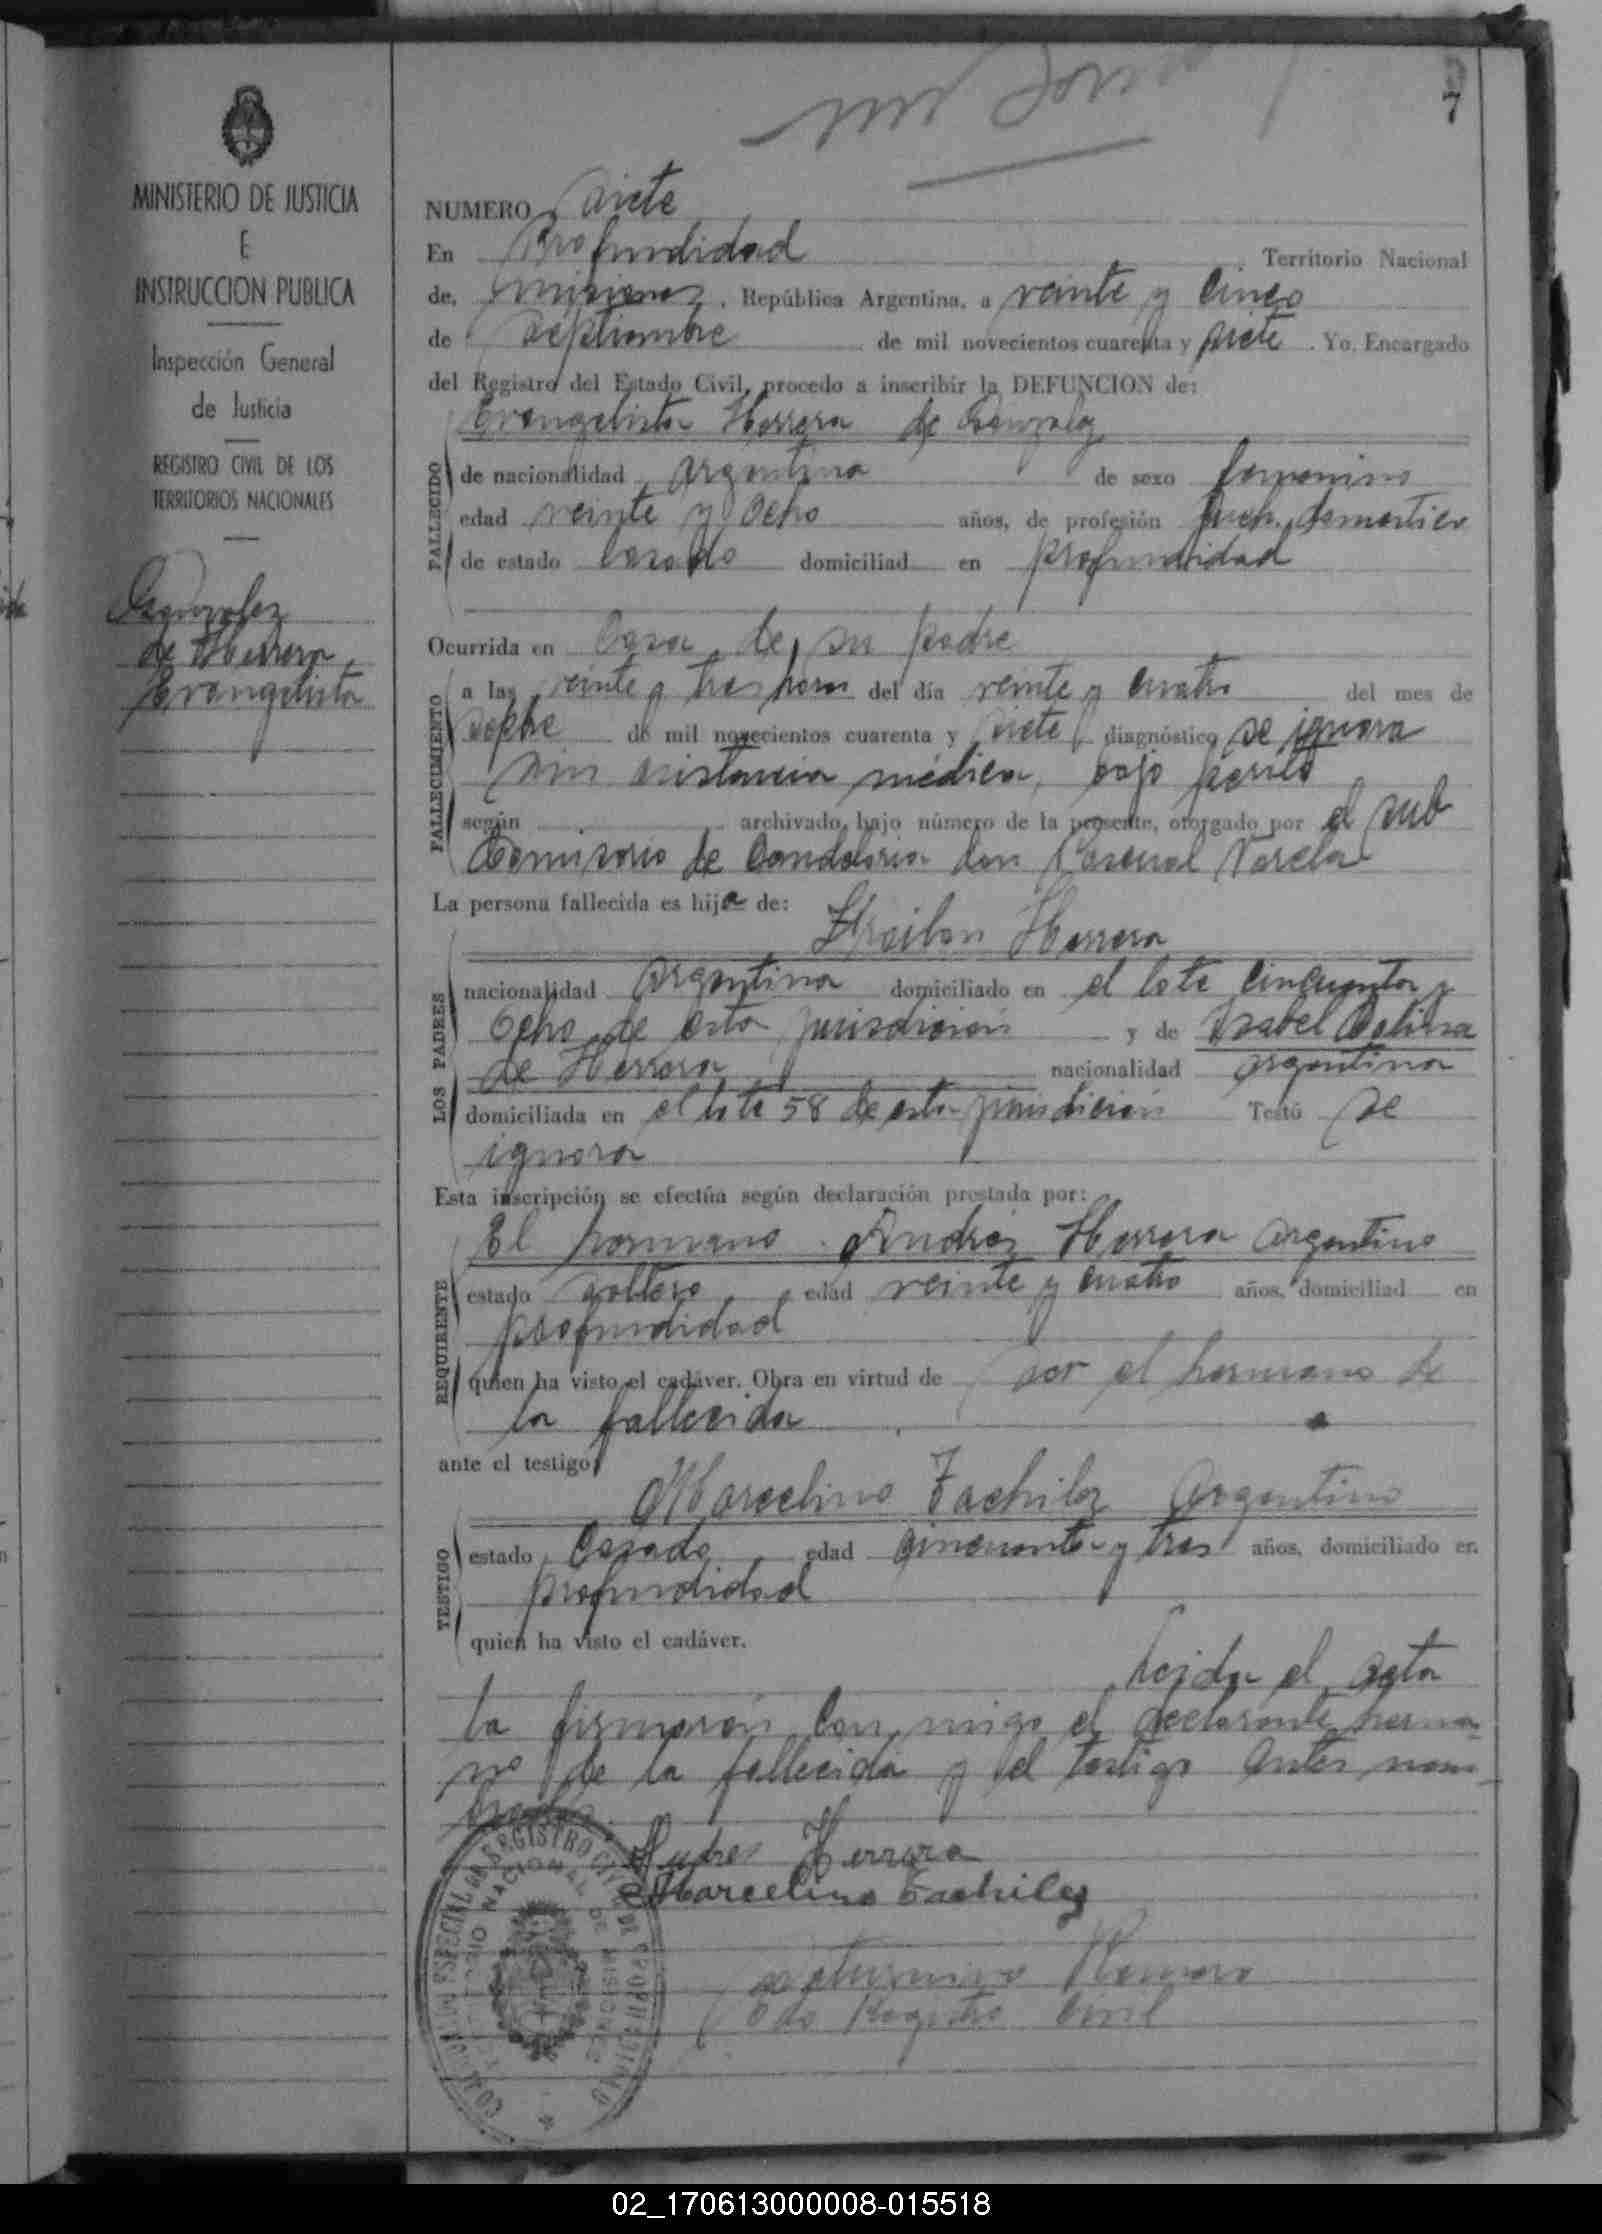 7
MINISTERIO DE JUSTICIA
E
INSTRUCCION PUBLICA
Inspección General
de Justicia
REGISTRO CIVIL DE LOS
TERRITORIOS NACIONALES
Gonzalez
de Herrera,
Evangelista
NUMERO siete
En Profundidad Territorio Nacional
de, Misiones, República Argentina, a veinte y cinco
de septiembre de mil novecientos cuarenta y siete. Yo, Encargado
del Registro del Estado Civil, procedo a inscribir la DEFUNCION de:
Evangelista Herrera de Gonzalez
FALLECIDO
de nacionalidad argentina de sexo femenino
edad veinte y ocho años, de profesión domestico
de estado casado domiciliad en profundidad
Ocurrida en casa de su padre
FALLECIMIENTO
a las veinte y tres horas del día veinte y cuatro del mes de
sepbre de mil novecientos cuarenta y siete diagnóstico se ignora
sin asistencia médica, bajo
según archivado, bajo número de la presente, otorgado por el sub
Comisario de Candelaria don Varela
La persona fallecida es hija de:
Herrera
LOS PADRES
nacionalidad argentina domiciliado en el lote cincuenta y
ocho de esta jurisdicion y de Isabel
de Herrera nacionalidad argentina
domiciliada en el lote 58 de esta jurisdicion Testó se
ignora
Esta inscripción se efectúa según declaración prestada por:
El hermano Andrés Herrera argentino
REQUIRENTE
estado soltero edad veinte y cuatro años, domiciliad en
profundidad
quien ha visto el cadáver. Obra en virtud de ser el hermano de
la fallecida
ante el testigo
Marcelino Argentino
TESTIGO
estado Casado edad cincuenta y tres años, domiciliado en
profundidad
quien ha visto el cadáver.
Leida el acta
la firmaron con migo el declarante herma-
no de la fallecida y el testigo antes nom-
brados.
Andres Herrera
Marcelino
Saturnino Romero
Registro Civil
02_170613000008-015518